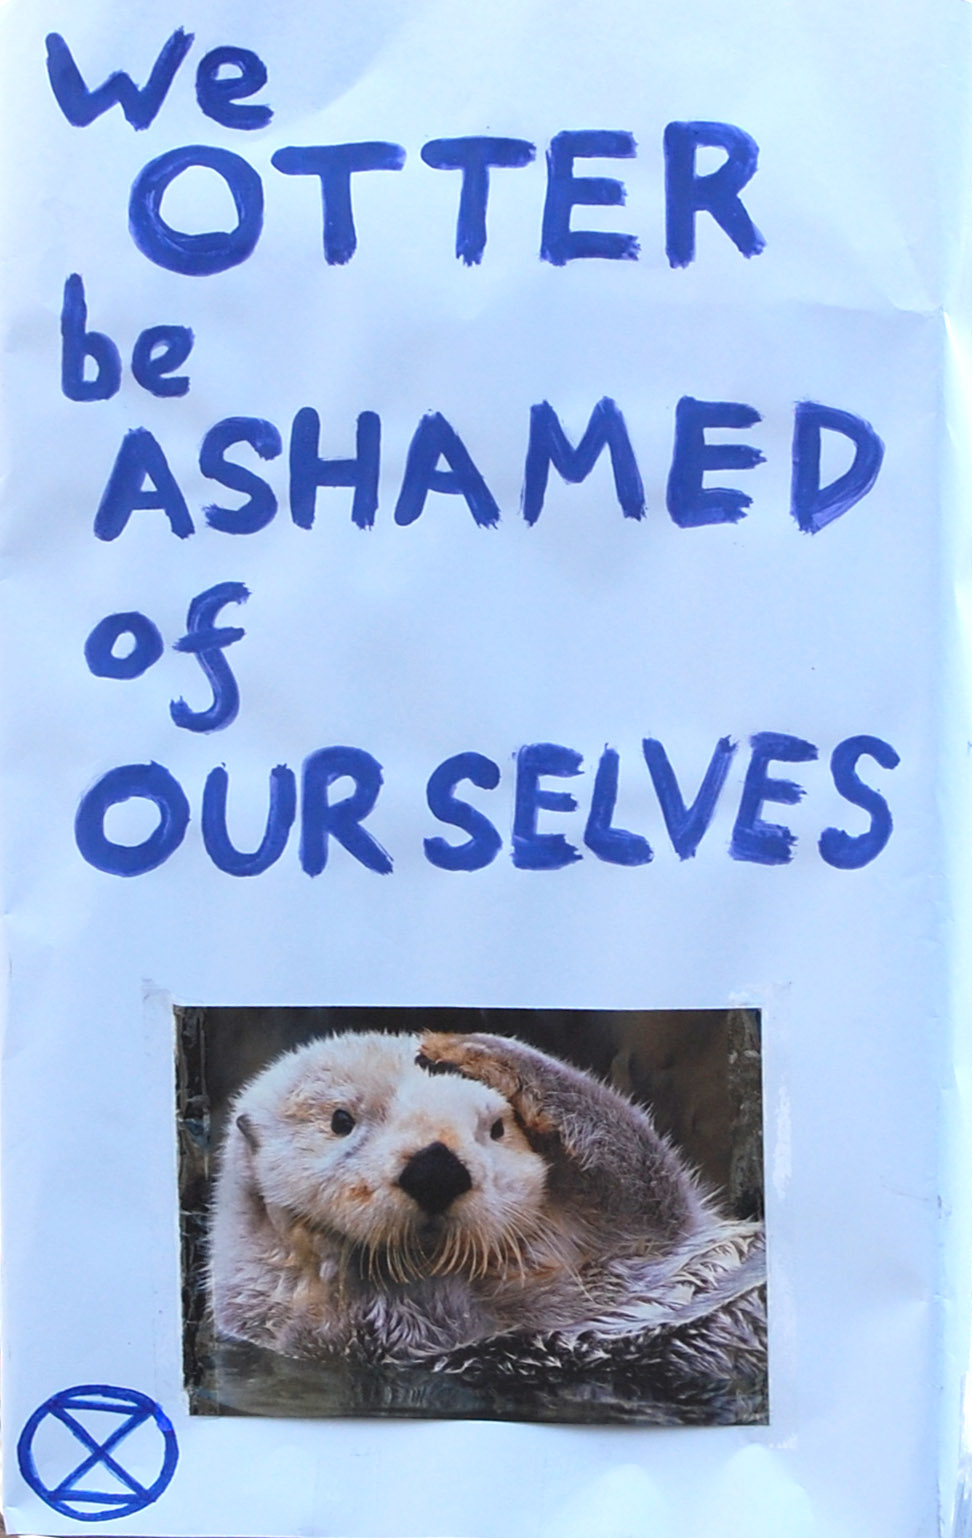 We
OTTER
be
ASHAMED
of
OURSELVES